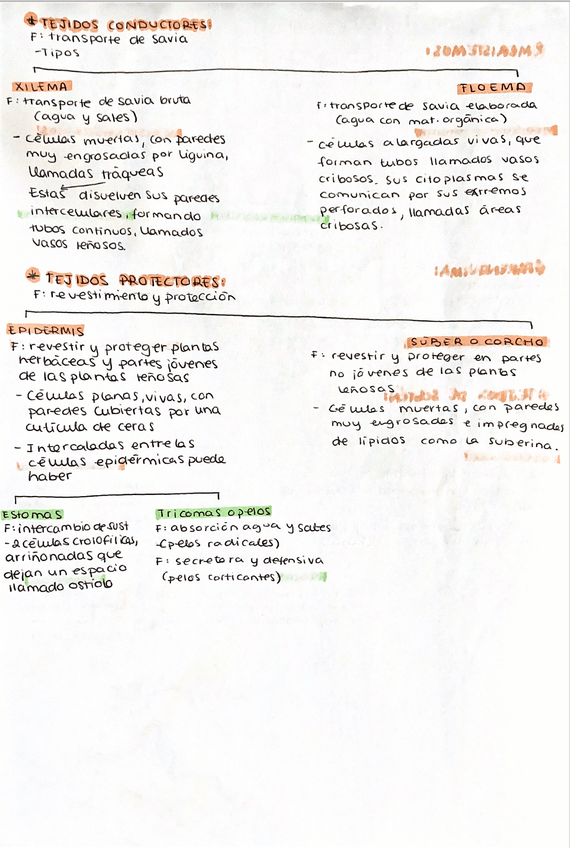 * TEJIDOS CONDUCTORES:
F: transporte de savia
-Tipos
XILEMA
F: transporte de savia bruta
(agua y sales)
- Células muertas, con paredes
muy engrosadas por liguina,
llamadas tráqueas
Estas disuelven sus paredes
intercelulares, formando
tubos continuos, llamados
vasos leñosos.
FLOEMA
F: transporte de savia elaborada
(agua con mat. orgánica)
- células alargadas vivas, que
forman tubos llamados vasos
cribosos. Sus citoplasmas se
comunican por sus extremos
perforados, llamadas áreas
cribosas.
* TEJIDOS PROTECTORES:
F: revestimiento y protección
EPIDERMIS
F: revestir y proteger plantas
herbáceas y partes jóvenes
de las plantas leñosas
- Células planas, vivas, con
paredes cubiertas por una
cutícula de ceras
- Intercaladas entre las
células epidérmicas puede
haber
SÚBER O CORCHO
F: revestir y proteger en partes
no jóvenes de las plantas
leñosas
- Células muertas, con paredes
muy engrosadas e impregnadas
de lípidos como la suberina.
Estomas
F: intercambio de sust
-2 células clorofílicas,
arriñonadas que
dejan un espacio
llamado ostiolo
Tricomas o pelos
F: absorción agua y sales
-(pelos radicales)
F: secretora y defensiva
(pelos corticantes)